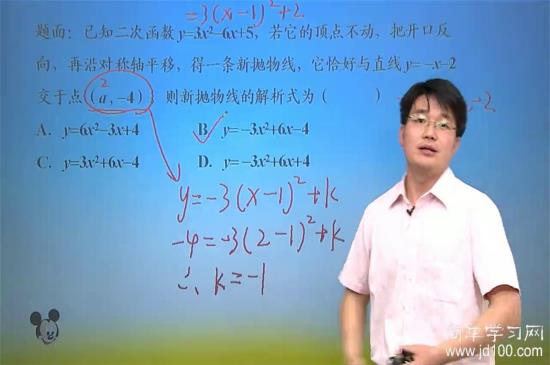 =3(x-1)²+2
题面:已知二次函数y=3x²-6x+5,若它的顶点不动,把开口反
向,再沿对称轴平移,得一条新抛物线,它恰好与直线y=-x-2
2
交于点(a,-4),则新抛物线的解析式为( )
-2
A. y=6x²-3x+4 B. y=-3x²+6x-4
C. y=-3x²+6x+4 D. y=-3x²+6x+4
y=-3(x-1)²+k
-4=-3(2-1)²+k
∴ k=-1
简单学习网
www.jd100.com